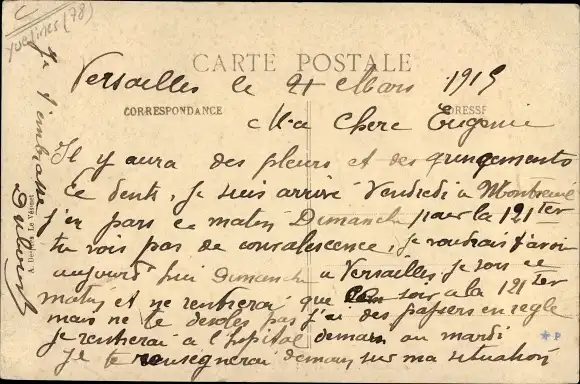 C
Yvelines (78)
CARTE POSTALE
Versailles le 21 Mars 1915
CORRESPONDANCE
ADRESSE
Ma Chere Eugenie
Il y aura des pleurs et des grincements
de dents, je suis arrivé Vendredi a Montreuil
j'en pars ce matin Dimanche pour la 121 ter
tu vois pas de convalescence, je voudrais t'avoir
aujourd'hui Dimanche a Versailles je sors ce
matin et ne rentrerai que soir a la 121 ter
mais ne te desoles pas j'ai des papiers en regle
je rentrerai a l'hopital demain ou mardi
je te renseignerai demain sur ma situation
Je t'embrasse
P